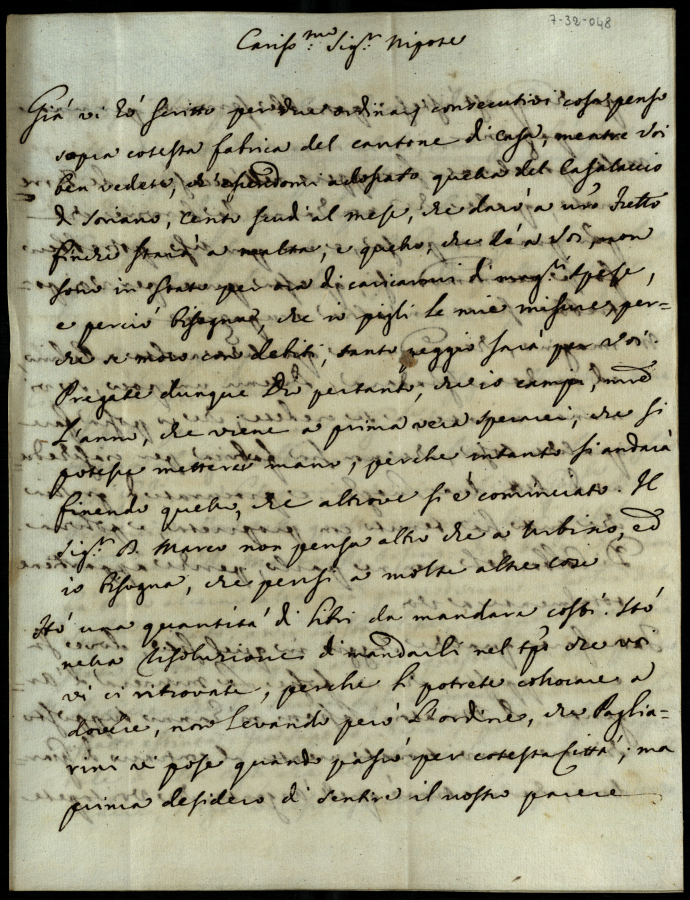 7-32-048
Cariss.mo Sig.r Nipote
Già vi hò scritto per due ordinarj consecutivi cosa penso
sopra cotesta fabrica del cantone di casa, mentre voi
ben vedete, che essendomi adossato quella del Casalaccio
di Soriano, cento scudi al mese, che darò a vro Frello
finche starà a Malta, e quello, che dò a Voi, non
sono in stato per ora di caricarmi di magg.ri spese,
e perciò bisogna, che io pigli le mie misure, per=
che se moro con debiti, tanto peggio sarà per Voi.
Pregate dunque Dio pertanto, che io campi, mentre
l'anno, che viene a prima vera sperarei, che si
potesse mettere mano, perche intanto si andarà
finendo quello, che altrove si è cominciato. Il
Sig.r D. Marco non pensa altro che a Urbino, ed
io bisogna, che pensi a molte altre cose
Hò una quantità di libri da mandare costì. Stò
nella risoluzione di mandarli nel tpo che voi
vi ci ritrovate, perche li potrete collocare a
dovere, non levando però l'ordine, che Paglia=
rini vi pose quando passò per cotesta Città; ma
prima desidero di sentire il vostro parere